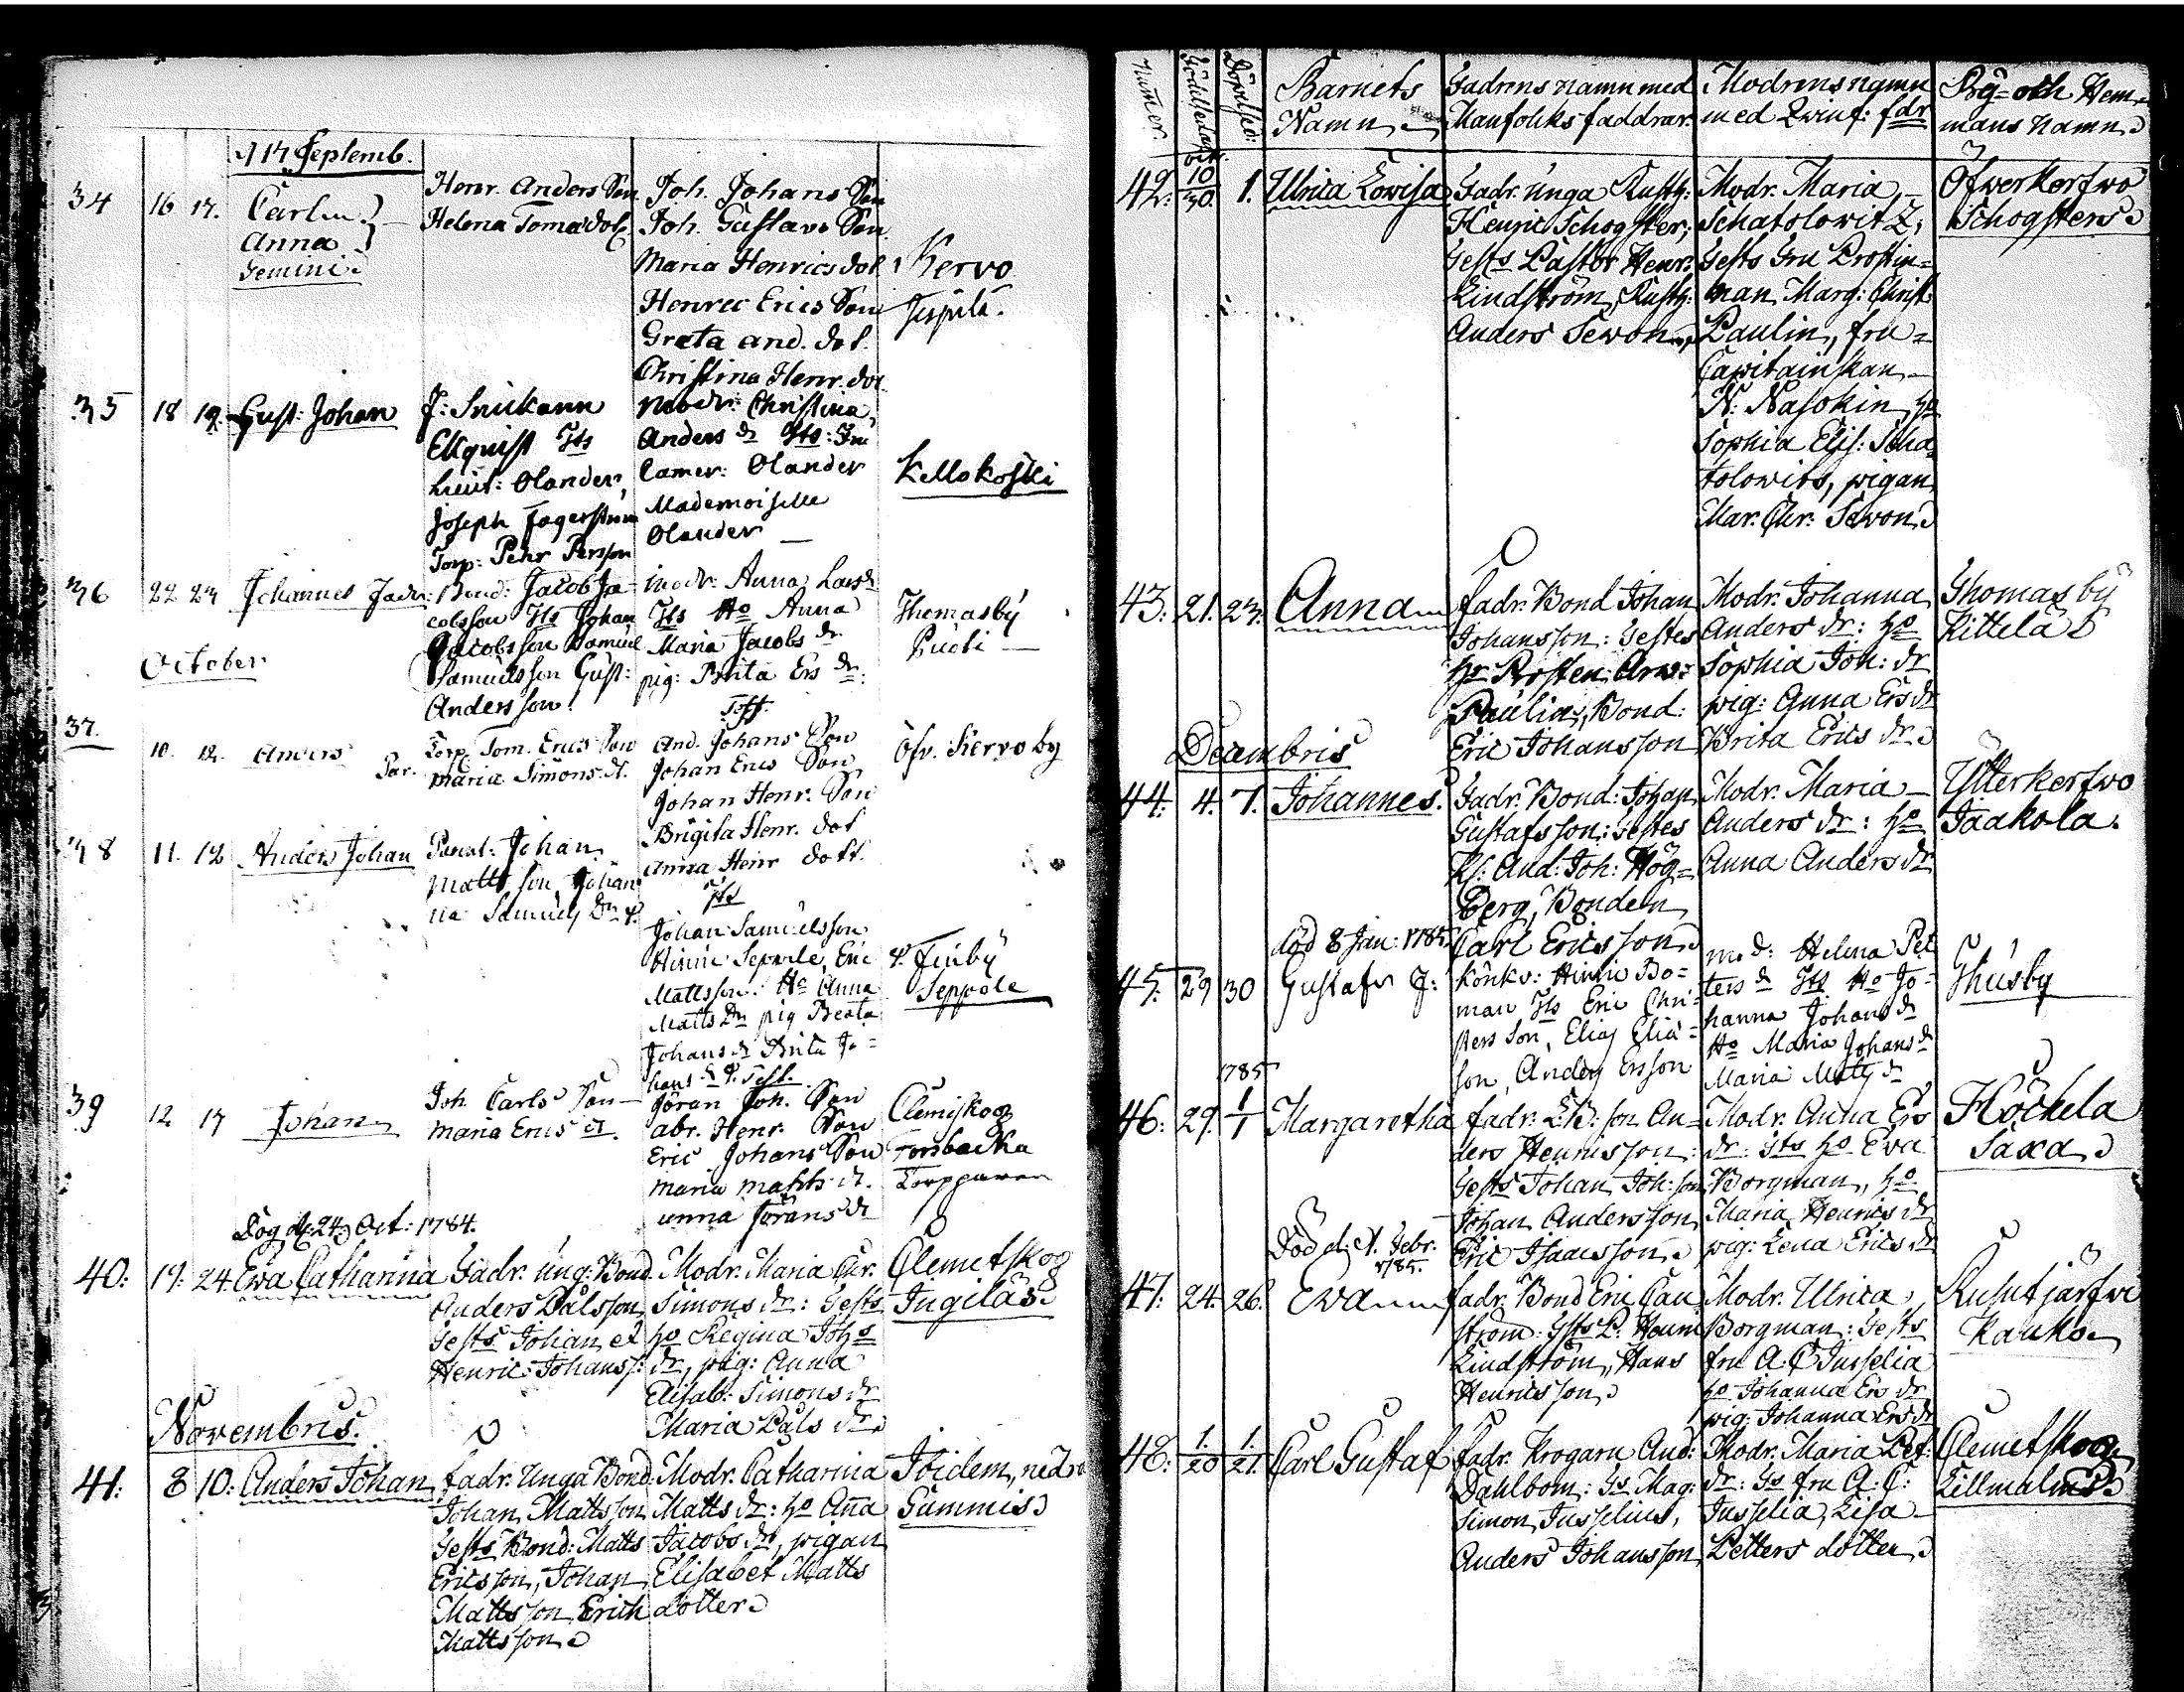 Septemb.
34 16 17. Carl
Anna
Gemini
Henr. Anders Son
Helena Toma dot
Joh. Johans Son
Joh. Gustavs Son
Maria Henrics dot
Henric Erics Son
Greta And. dot.
Christina Henr. dot
Kervo
35 18 19. Gust: Johan
Ekquist Jts
Lieut: Olander,
Joseph Fagerström
Torp: Pehr Persson
modr: Christina
Anders dr Jts: Fru
Camer: Olander
Mademoiselle
Olander
Kellokoski
36 22 23 Johannes
Fadr: Bond: Jacob Ja-
cobsson Jts Johan
Jacobsson Samuel
Samuelsson Gust:
Andersson
modr: Anna Lars dr
Jts Ho Anna
Maria Jacobs dr
pig: Brita Ers dr:
Thomasby
October
37. 10. 12. Anders
Par. Torp. Tom. Erics Son
Maria Simons d.
Test.
And. Johans Son
Johan Erics Son
Johan Henr. Son
Brigita Henr. dot
Anna Henr dott.
Öfv. Kervo by
38 11. 12 Anders Johan
Johan
Matts son, Johan
na Samuels Dr
Jts
Johan Samuelsson
Hinric Seppäle, Eric
Mattsson. Ho Anna
Matts Dr pig Beata
Johans dr Brita Jo-
hans dr
Finby
Seppäle
39 12 17 Johan
Joh. Carls Son
Maria Erics d.
Test.
Göran Joh. Son
Abr. Henr. Son
Eric Johans Son
Maria Matts d.
Anna Görans d
Clemiskog
Torpparen
Dog d. 24 Oct: 1784.
40: 19. 24. Ewa Catharina
Fadr. Ung: Bond.
Anders Pålsson
Gests Johan et
Henric: Johanss:
Modr. Maria Chr.
Simons dr: Gests
ho Regina Johs
dr, pig: Anna
Elisab: Simons dr
Maria Påls dr
Clemetskog
Ingilas
Novembris.
41: 8 10: Anders Johan
Fadr. Unga Bond.
Johan Mattsson
Gests Bond: Matts
Ericsson, Johan
Mattsson Erich
Mattsson
Modr. Catharina
Matts dr: ho Anna
Jacobs dr, pigan
Elisabet Matts
dotter
Ibidem, nedre
Gummis
Numer.
Födelsedag
Barnets
Namn
Fadrens namn med
Manfolks faddrar
Modrens namn
med Qvinf: fdr
By- och Hem-
mans namn
42. 10/30. 1. Ulrica Lovisa
Fadr. Unga Rusth:
Henric Schogster;
Gests Pastor Henr.
Lindström, Rusth:
Anders Sevon
Modr. Maria
Schatolovitz,
Gests Fru Prostin-
nan Marg: Christ:
Paulin, fru
Capitainskan
N: Nasokin, ho
Sophia Elis: Scha
tolovits, pigan
Mar. Chr: Sevon
Öfverkertwo
Schogsters
43: 21. 23. Anna
Fadr. Bond Johan
Johansson: Gestes
Hr Prosten Arw:
Paulin, Bond:
Eric Johansson
Modr. Johanna
Anders dr: ho
Sophia Joh: dr
pig: Anna Ers dr
Brita Erics dr
Thomasby
Kittelä
Decembris
44. 4. 7. Johannes.
Fadr. Bond: Johan
Gustafsson: Gestes
And: Joh: Hög-
berg, Bonden
Carl Ericsson
Modr. Maria
Anders dr: ho
Anna Anders dr
Ytterkertwo
Jaakola.
död 8 Jan: 1785
45. 29 30 Gustafv J:
Hinric Bo-
man Jts Eric Chri-
sters son, Elias Elia-
son, Anders Ersson
mod: Helena Pet
ters dr Jts Ho Jo-
hanna Johans dr
Ho Maria Johans dr
Maria Matts dr
Thusby
1785
46: 29. 1/1 Margaretha
Fadr. son An-
ders Henricsson:
Gests Johan Joh: son
Johan Andersson
Eric Isacsson
Modr. Anna Ers
dr: Gts ho Eva
Borgman, ho
Maria Henrics dr
pig: Lena Erics dr
Höckela
Saxa
Död d: 1. Febr.
1785.
47: 24. 26. Eva
Fadr. Bond Eric Cau
ström: Gsts P. Henric
Lindström, Hans
Henricsson
Modr. Ulrica
Borgman: Gests
fru A. C Jusselia
ho Johanna Ers dr
pig: Johanna Ers dr
Rusutjärfvi
Kauko
48: 1./20 1./21. Carl Gustaf
Fadr. Krogarn And:
Dahlbom: Gs Mag:
Simon Jusselius,
Anders Johansson
Modr. Maria Pet:
dr: Gs fru A: C:
Jusselia, Lisa
Petters dotter
Clemetskog
Lillmalms